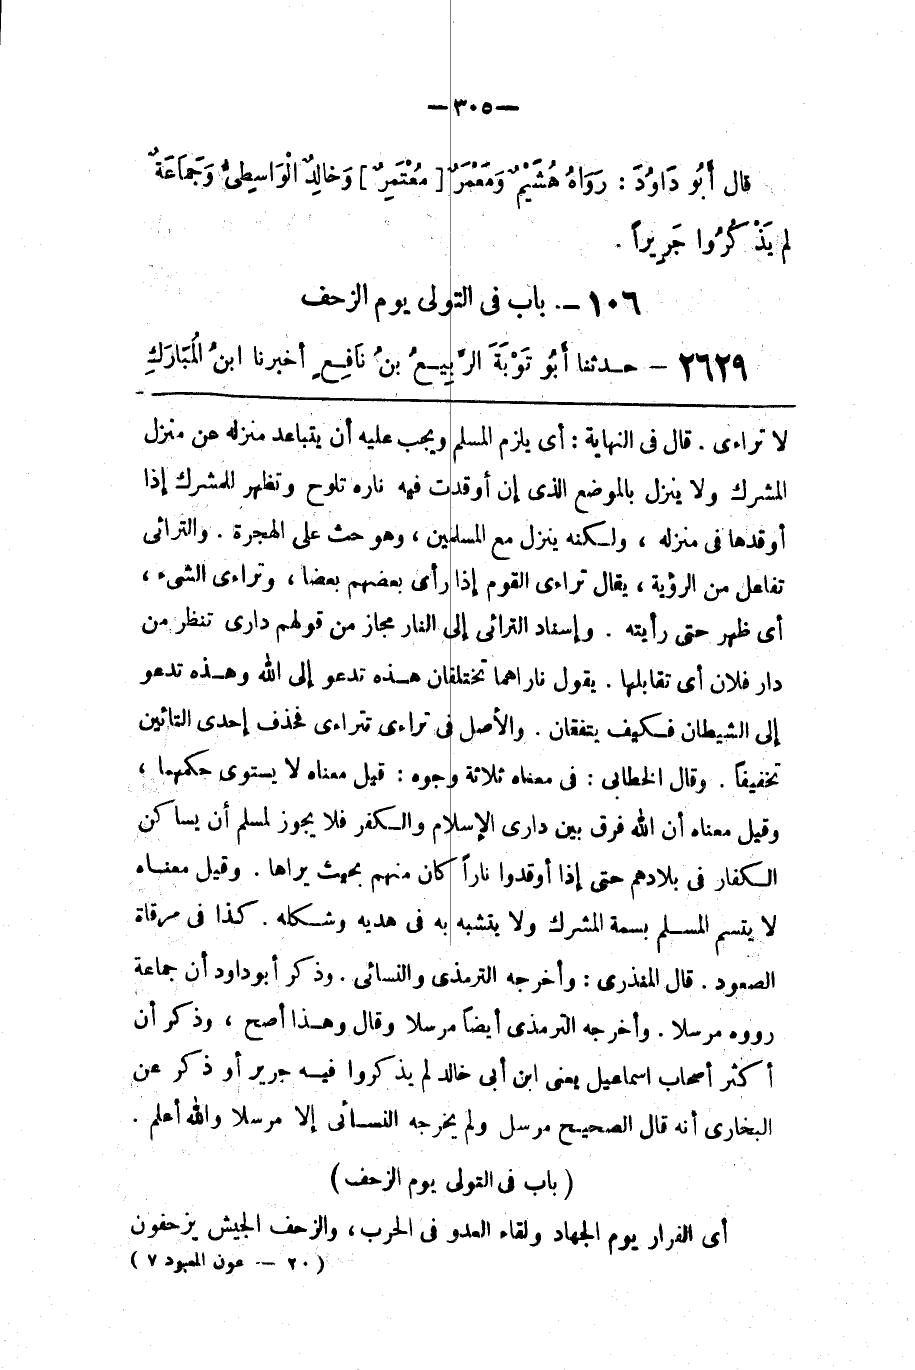 — ٣٠٥ —
قال أَبُو دَاوُدَ : رَوَاهُ هُشَيْمٌ وَمَعْمَرٌ [ مُعْتَمِرٌ ] وَخالِدٌ الْوَاسِطِىُّ وَجَمَاعَةٌ
لم يَذْكُرُوا جَرِيراً .
١٠٦ – باب فى التولى يوم الزحف
٢٦٢٩ – حـدثنا أَبُو تَوْبَةَ الرَّبِيـعُ بنُ نَافِـعٍ أخبرنا ابنُ الْمُبَارَكِ
لا تراءى . قال فى النهاية : أى يلزم المسلم ويجب عليه أن يتباعد منزله عن منزل
المشرك ولا ينزل بالموضع الذى إن أوقدت فيه ناره تلوح وتظهر للمشرك إذا
أوقدها فى منزله ، ولـكنه ينزل مع المسلمين ، وهو حث على الهجرة . والترائى
تفاعل من الرؤية ، يقال تراءى القوم إذا رأى بعضهم بعضا ، وتراءى الشىء ،
أى ظهر حتى رأيته . وإسناد الترائى إلى النار مجاز من قولهم دارى تنظر من
دار فلان أى تقابلها . يقول ناراهما تختلفان هـذه تدعو إلى الله وهـذه تدعو
إلى الشيطان فـكيف يتفقان . والأصل فى تراءى تتراءى فحذف إحدى التائين
تخفيفاً . وقال الخطابى : فى معناه ثلاثة وجوه : قيل معناه لا يستوى حكمهما ،
وقيل معناه أن الله فرق بين دارى الإسلام والـكفر فلا يجوز لمسلم أن يساكن
الـكفار فى بلادهم حتى إذا أوقدوا ناراً كان منهم بحيث يراها . وقيل معنـاه
لا يتسم المسـلم بسمة المشرك ولا يتشبه به فى هديه وشـكله . كذا فى مرقاة
الصعود . قال المنذرى : وأخرجه الترمذى والنسائى . وذكر أبو داود أن جماعة
رووه مرسلا . وأخرجه الترمذى أيضاً مرسلا وقال وهـذا أصح ، وذكر أن
أكثر أصحاب اسماعيل يعنى ابن أبى خالد لم يذكروا فيـه جرير أو ذكر عن
البخارى أنه قال الصحيـح مرسل ولم يخرجه النسـائى إلا مرسلا والله أعلم .
( باب فى التولى يوم الزحف )
أى الفرار يوم الجهاد ولقاء العدو فى الحرب ، والزحف الجيش يزحفون
( ٢٠ – عون المعبود ٧ )